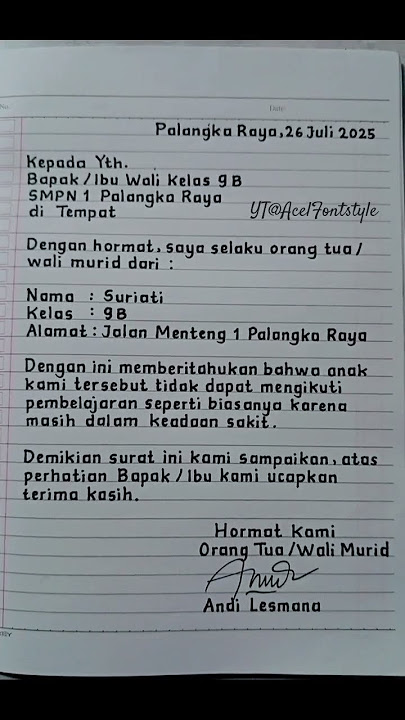 No.
Date:
Palangka Raya, 26 Juli 2025
Kepada Yth.
Bapak / Ibu Wali Kelas 9B
SMPN 1 Palangka Raya
di Tempat
YT@AcelFontstyle
Dengan hormat, saya selaku orang tua /
wali murid dari :
Nama : Suriati
Kelas : 9B
Alamat : Jalan Menteng 1 Palangka Raya
Dengan ini memberitahukan bahwa anak
kami tersebut tidak dapat mengikuti
pembelajaran seperti biasanya karena
masih dalam keadaan sakit.
Demikian surat ini kami sampaikan, atas
perhatian Bapak / Ibu kami ucapkan
terima kasih.
Hormat Kami
Orang Tua / Wali Murid
Andi Lesmana